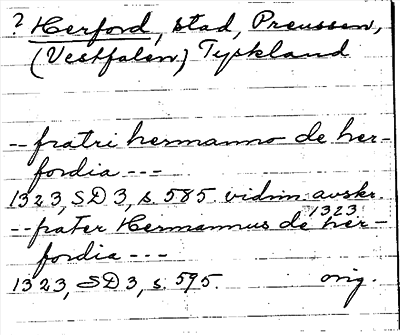 ? Herford, stad, Preussen,
(Vestfalen) Tyskland
-- fratri hermanno de her-
fordia ---
1323, SD 3, s. 585. vidim. avskr.
1323
-- frater Hermannus de her-
fordia ---
1323, SD 3, s. 595. orig.